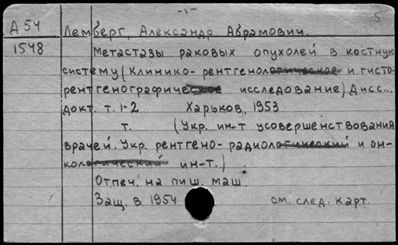 -1-
5
Д 54 Лемберг, Александр Абрамович.
1548 Метастазы раковых опухолей в костную
систему (Клинико-рентгенологическое и гисто-
рентгенографическое исследование) Дисс...
докт. т. 1-2 Харьков, 1953
т. (Укр. ин-т усовершенствования
врачей. Укр. рентгено-радиологический и он-
кологический ин-т.)
Отпеч. на пиш. маш.
Защ. в 1954 см. след. карт.